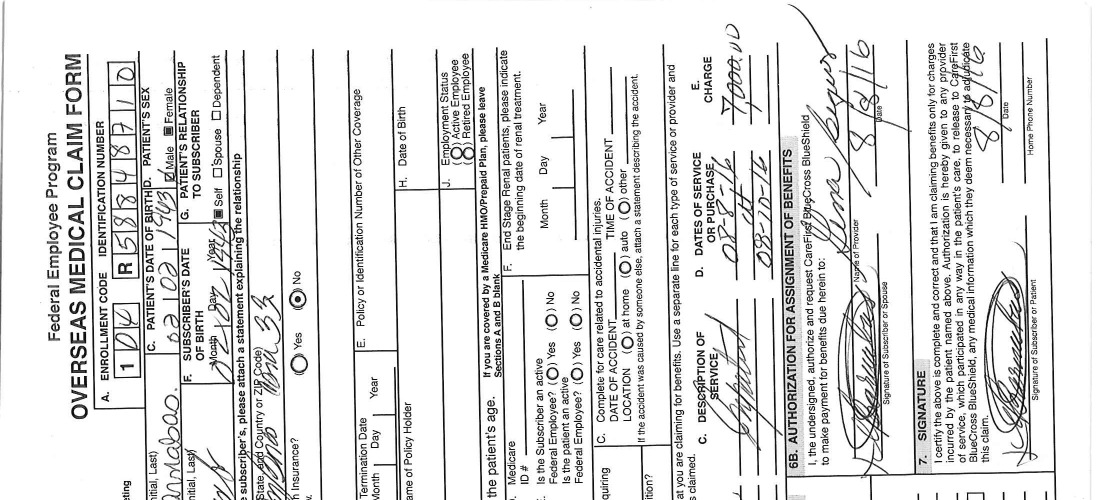 Federal Employee Program
OVERSEAS MEDICAL CLAIM FORM
A. ENROLLMENT CODE IDENTIFICATION NUMBER
1 0 4 R 5 8 8 4 8 7 1 0
nitial, Last) C. PATIENT'S DATE OF BIRTH D. PATIENT'S SEX
02 02 1943 Male Female
nitial, Last) F. SUBSCRIBER'S DATE OF BIRTH G. PATIENT'S RELATIONSHIP TO SUBSCRIBER
Month Day Year Self Spouse Dependent
e subscriber's, please attach a statement explaining the relationship
State and Country or ZIP Code)
h Insurance? Yes No
Termination Date E. Policy or Identification Number of Other Coverage
Month Day Year
ame of Policy Holder H. Date of Birth
J. Employment Status
(O) Active Employee
(O) Retired Employee
the patient's age. If you are covered by a Medicare HMO/Prepaid Plan, please leave
Sections A and B blank
Medicare
ID #
F. End Stage Renal patients, please indicate
the beginning date of renal treatment.
Is the Subscriber an active
Federal Employee? (O) Yes (O) No
Is the patient an active
Federal Employee? (O) Yes (O) No
Month Day Year
quiring C. Complete for care related to accidental injuries.
DATE OF ACCIDENT TIME OF ACCIDENT
LOCATION (O) at home (O) auto (O) other
If the accident was caused by someone else, attach a statement describing the accident.
ition?
at you are claiming for benefits. Use a separate line for each type of service or provider and
s claimed.
C. DESCRIPTION OF SERVICE D. DATES OF SERVICE OR PURCHASE E. CHARGE
08-8-16 7,000.00
08-10-16
6B. AUTHORIZATION FOR ASSIGNMENT OF BENEFITS
I, the undersigned, authorize and request CareFirst BlueCross BlueShield
to make payment for benefits due herein to:
Name of Provider
8/8/16
Signature of Subscriber or Spouse Date
7. SIGNATURE
I certify the above is complete and correct and that I am claiming benefits only for charges
incurred by the patient named above. Authorization is hereby given to any provider
of service, which participated in any way in the patient's care, to release to CareFirst
BlueCross BlueShield, any medical information which they deem necessary to adjudicate
this claim.
8/8/16
Signature of Subscriber or Patient Date
Home Phone Number